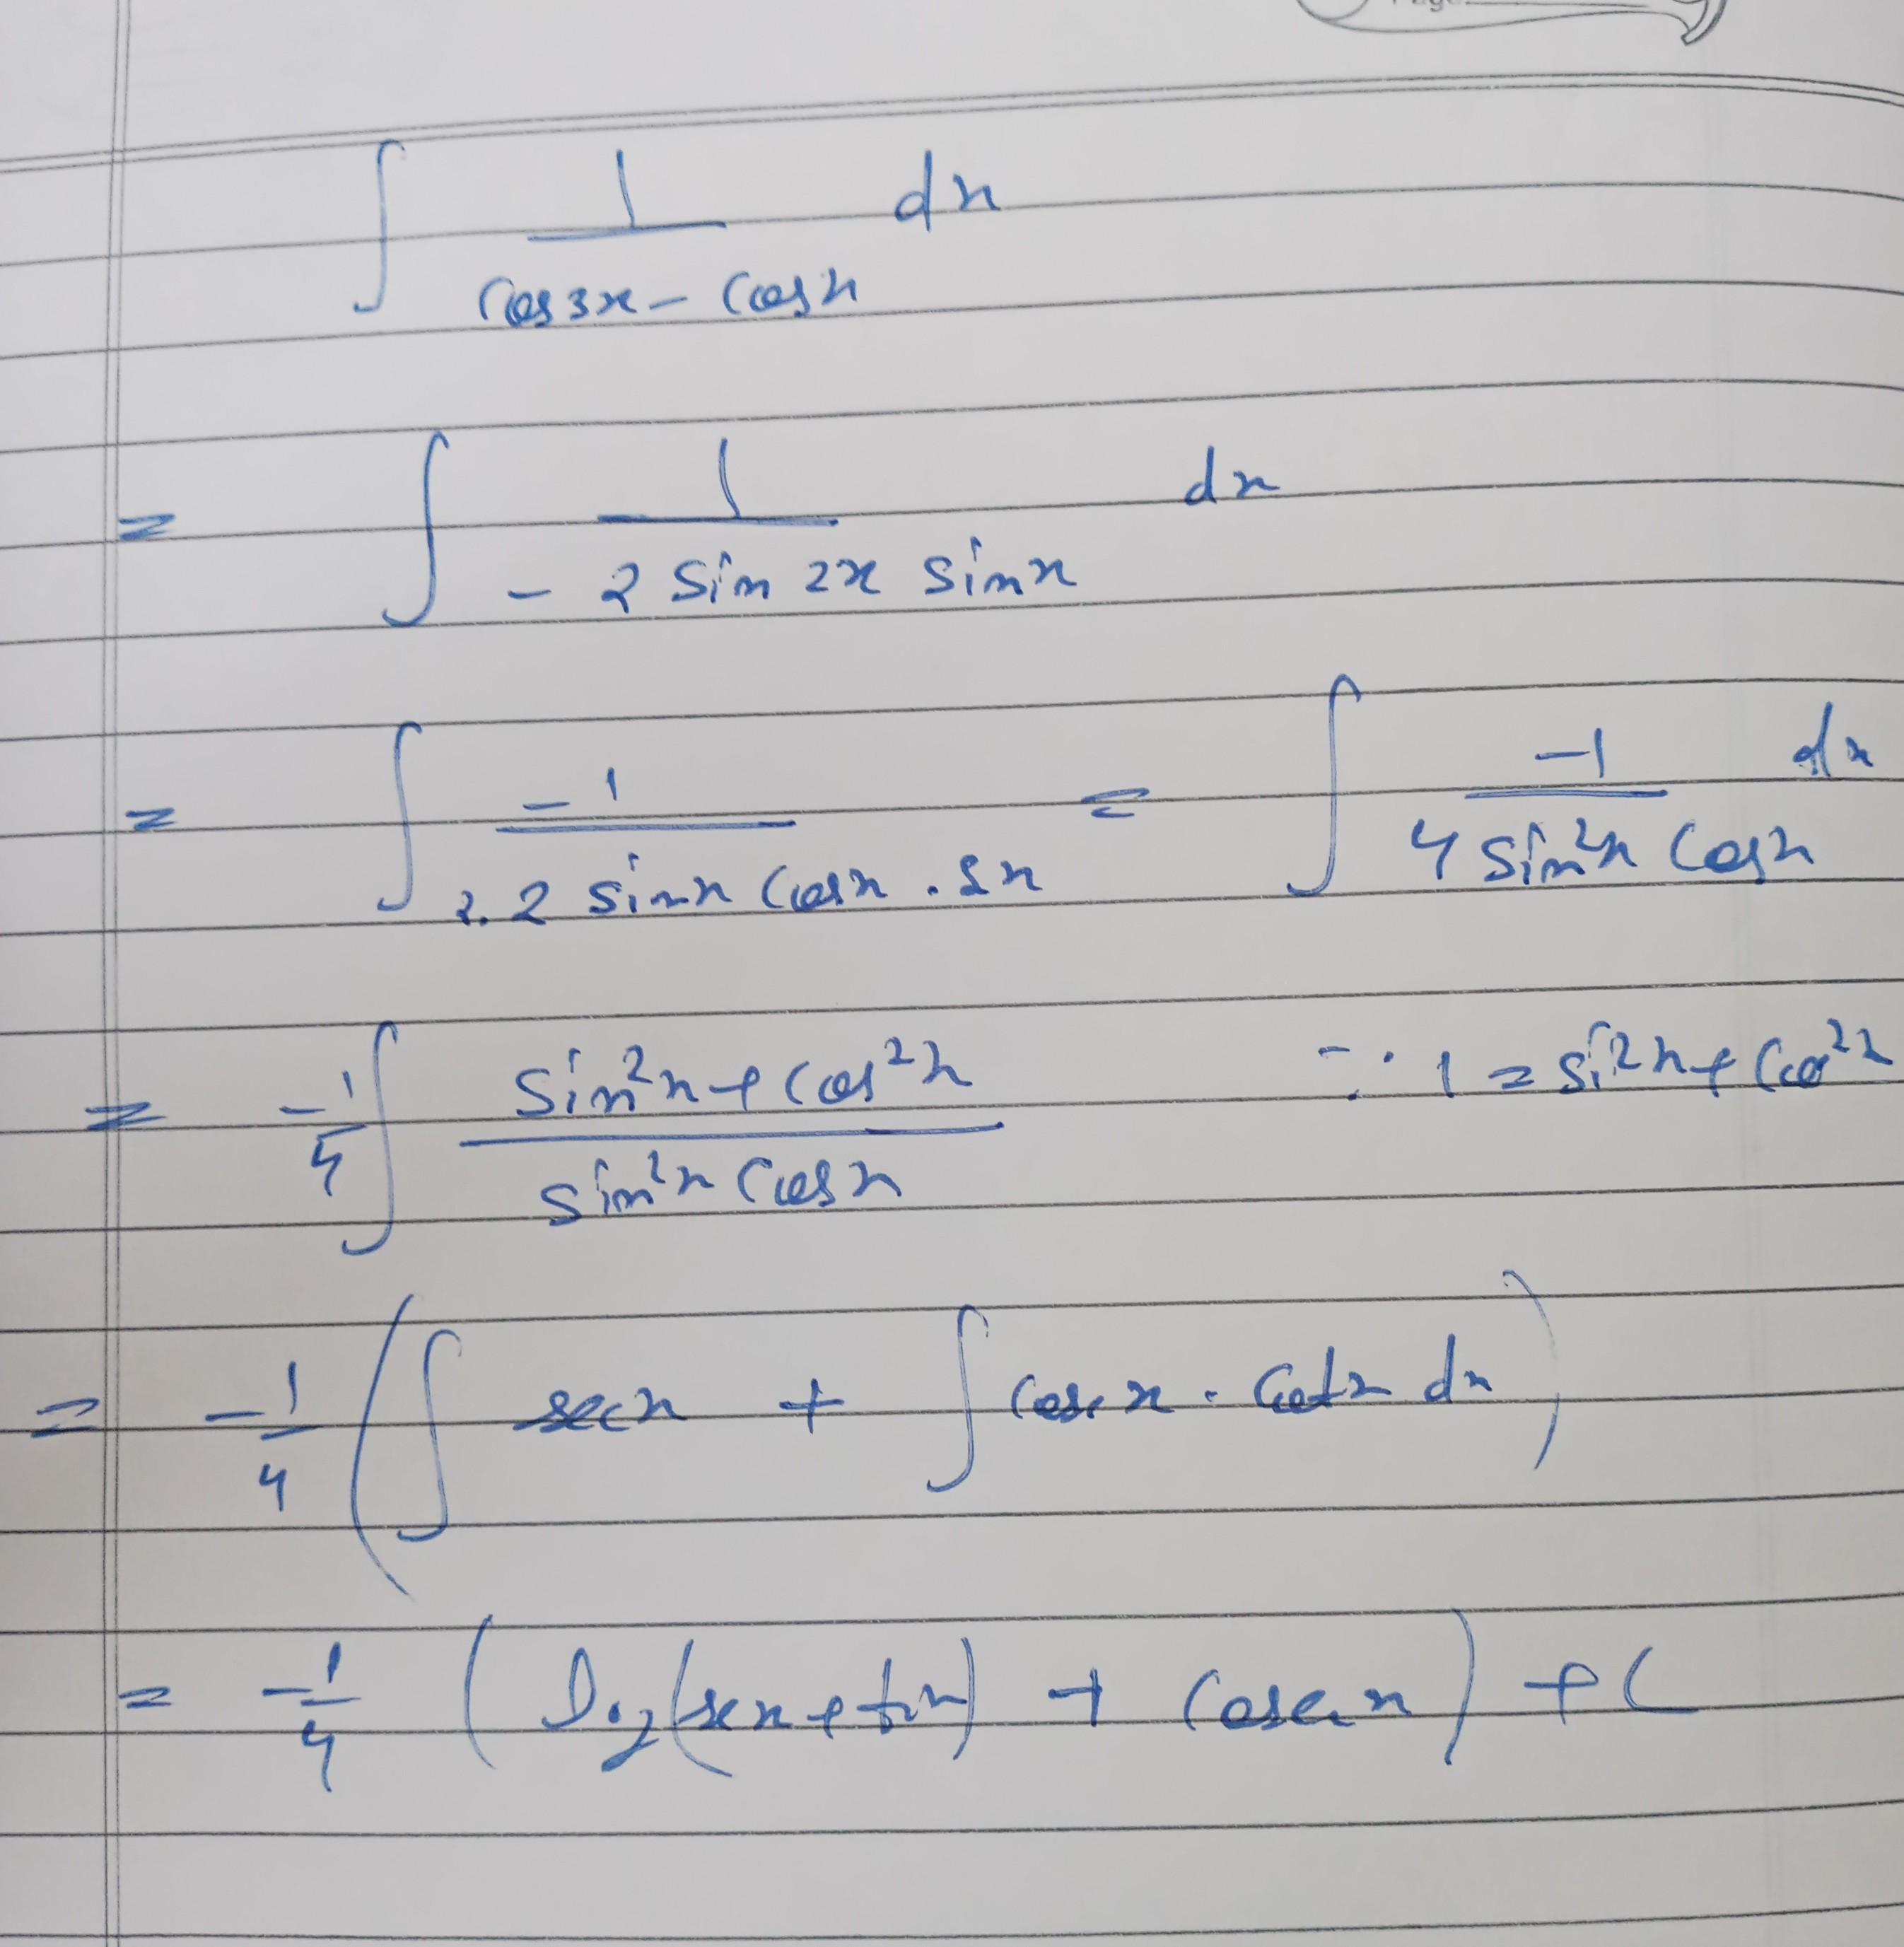 ∫ 1/(cos3x - cosx) dx
= ∫ 1/(-2 sin 2x sinx) dx
= ∫ -1/(2.2 sinx cosx . sx) = ∫ -1/(4 sin²x cosx) dx
= -1/4 ∫ (sin²x + cos²x)/(sin²x cosx) ∵ 1 = si²x + cos²x
= -1/4 (∫ secx + ∫ cosec x . cotx dx)
= -1/4 (log(secx + tanx) + cosec x) + C